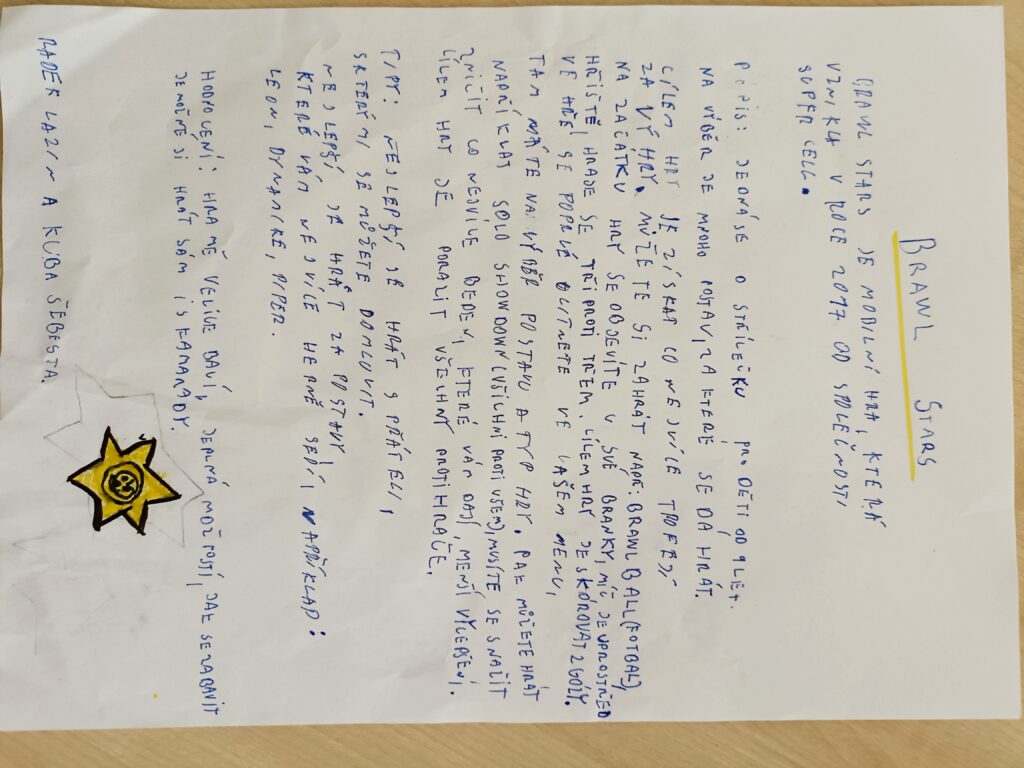 BRAWL STARS
BRAWL STARS JE MOBILNÍ HRA, KTERÁ
VZNIKLA V ROCE 2017 OD SPOLEČNOSTI
SUPER CELL.
POPIS: JEDNÁ SE O STŘÍLEČKU PRO DĚTI OD 9 LET.
NA VÝBĚR JE MNOHO POSTAV, ZA KTERÉ SE DÁ HRÁT.
CÍLEM HRY JE ZÍSKAT CO NEJVÍCE TROFEJÍ
ZA VÝHRY. MŮŽETE SI ZAHRÁT NAPŘ: BRAWL BALL (FOTBAL),
NA ZAČÁTKU HRY SE OBJEVÍTE V SVÉ BRANKY, MÍČ JE UPROSTŘED
HŘIŠTĚ, HRAJE SE TŘI PROTI TŘEM. CÍLEM HRY JE SKÓROVAT 2 GÓLY.
VE HŘE SE POPRVÉ OCITNETE VE VAŠEM MENU,
TAM MÁTE NA VÝBĚR POSTAVU A TYP HRY. PAK MŮŽETE HRÁT
NAPŘÍKLAD SOLO SHOWDOWN (VŠICHNI PROTI VŠEM), MUSÍTE SE SNAŽIT
ZNIČIT CO NEJVÍCE BEDEN, KTERÉ VÁM DAJÍ, MENŠÍ VYLEPŠENÍ.
CÍLEM HRY JE PORAZIT VŠECHNY PROTIHRÁČE.
TIPY: NEJLEPŠÍ JE HRÁT S PŘÁTELI,
S KTERÝMI SE MŮŽETE DOMLUVIT.
NEJLEPŠÍ JE HRÁT ZA POSTAVY,
KTERÉ VÁM NEJVÍCE HERNĚ SEDÍ, NAPŘÍKLAD:
LEON, DYNAMIKE, PIPER.
HODNOCENÍ: HRA MĚ VELICE BAVÍ, JE PLNÁ MOŽNOSTÍ, JAK SE ZABAVIT
JE MOŽNÉ JI HRÁT SÁM I S KAMARÁDY.
RADEK LAZIN A KUBA ŠEBESTA.